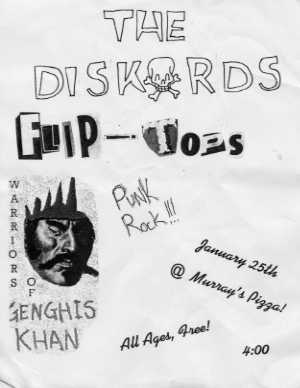 THE
DISKORDS
FLIP-TOPS
WARRIORS
OF
GENGHIS
KHAN
Punk
Rock!!!
January 25th
@ Murray's Pizza!
All Ages, Free!
4:00